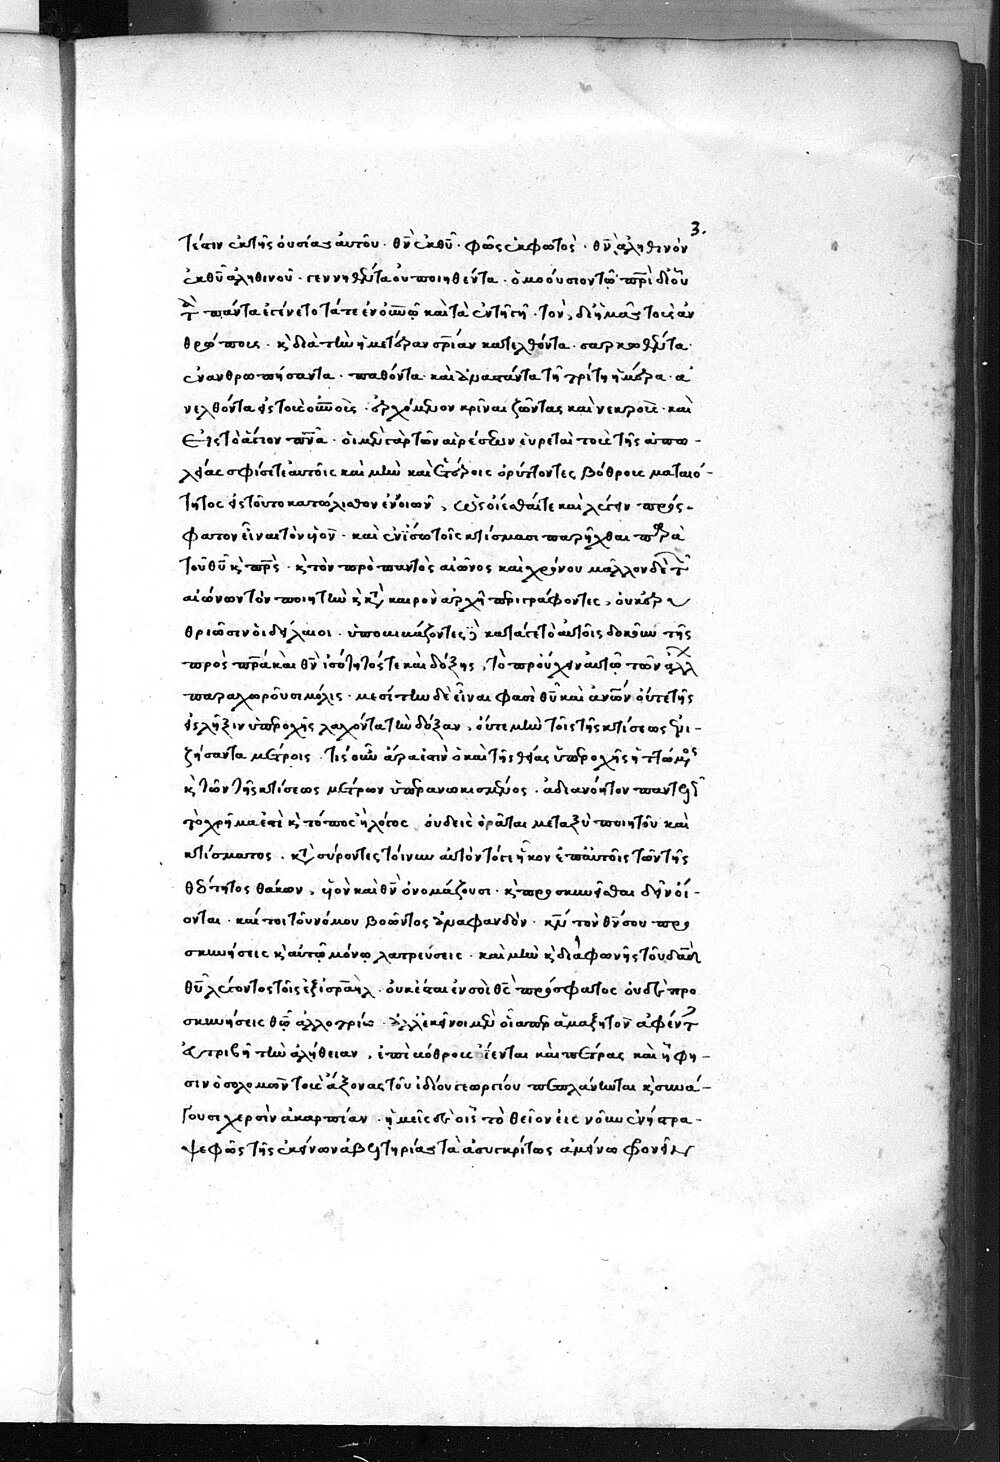 3.
τέστιν ἐκ τῆς οὐσίας αὐτοῦ · θν̅ ἐκ θυ̅ · φῶς ἐκ φωτὸς · θν̅ ἀληθινὸν
ἐκ θυ̅ ἀληθινοῦ · γεννηθέντα οὐ ποιηθέντα · ὁμοούσιον τῷ πρι̅ δι οὗ
τὰ πάντα ἐγένετο τά τε ἐν οὐνῷ καὶ τὰ ἐν τῇ γῇ · τὸν, δι ἡμᾶς τοὺς ἀν
θρώπους · κ διὰ τὴν ἡμετέραν σρίαν κατελθόντα · σαρκωθέντα ·
ἐνανθρωπήσαντα · παθόντα · καὶ ἀναστάντα τῇ τρίτῃ ἡμέρα · ἀ
νελθόντα εἰς τοὺς οὐνοὺς · ἐρχόμενον κρῖναι ζῶντας καὶ νεκρούς · καὶ
εἰς τὸ ἅγιον πνα̅ · οἱ μὲν γὰρ τῶν αἱρέσεων εὑρεταὶ τοὺς τῆς ἀπω -
λείας σφίσί τε αὐτοῖς καὶ μὴν καὶ ἑτέροις ὀρύττοντες βόθρους ματαιό -
τητος εἰς τοῦτο κατώλισθον ἐννοιῶν , ὡς οἴεσθαί τε καὶ λέγειν πρόσ -
φατον εἶναι τὸν υἱὸν · καὶ ἐν ἴσῳ τοῖς κτίσμασι παρῆχθαι παρὰ
τοῦ θυ̅ κ πρς̅ · κ τὸν πρὸ παντὸς αἰῶνος καὶ χρόνου μᾶλλον δὲ τῶν
αἰώνων τὸν ποιητὴν κ κτ καιρὸν ἀρχῇ περιγράφοντες , οὐκ ἐρυ
θριῶσιν οἱ δείλαιοι · ὑποβιβάζοντες κατά γε τὸ αὐτοῖς δοκοῦν τῆς
πρὸς πρα̅ καὶ θν̅ ἰσότητός τε καὶ δόξης , τὸ προὔχειν αὐτῷ τῶν ἄλλ
παραχωροῦσι μόλις · μεσίτην δὲ εἶναι φασὶ θυ̅ καὶ ἀνων̅ οὔτε τῆς
εἰς λῆξιν ὑπεροχῆς λαχόντα τὴν δόξαν , οὔτε μὴν τοῖς τῆς κτίσεως
ζήσαντα μέτροις · τίς οὖν ἄρα ἐστὶν ὁ καὶ τῆς θείας ὑπεροχῆς ἡττώμενος
κ τῶν τῆς κτίσεως μέτρων ὑπερανῳκισμένος · ἀδιανόητον παντελῶς
τὸ χρῆμά ἐστι κ τόπος ἢ λόγος οὐδεὶς ὁρᾶται μεταξὺ ποιητοῦ καὶ
κτίσματος · κτ σύροντες τοίνυν αὐτὸν τό γε ἧκον ἐπ αὐτοῖς τῶν τῆς
θεότητος θάκων , υἱὸν καὶ θν̅ ὀνομάζουσι · κ προσκυνεῖσθαι δεῖν οἴ -
ονται · καί τοι τοῦ νόμου βοῶντος ἀναφανδὸν · κν̅ τὸν θν̅ σου προ
σκυνήσεις κ αὐτῷ μόνῳ λατρεύσεις · καὶ μὴν κ διὰ φωνῆς τοῦ δαδ̅
θυ̅ λέγοντος τοῖς ἐξ ισραηλ · οὐκ ἔσται ἐν σοὶ θς̅ πρόσφατος οὐδὲ προ
σκυνήσεις θῷ ἀλλοτρίῳ · ἀλλ ἐκεῖνοι μὲν οἷα περ ἁμαξιτὸν ἀφέντες
εὐτριβῆ τὴν ἀλήθειαν , ἐπὶ βόθρους ἵενται καὶ πέτρας καὶ ᾗ φη -
σιν ὁ σολομῶν τοὺς ἄξονας τοῦ ἰδίου γεωργίου πεπλάνηνται κ συνά -
γουσι χερσὶν ἀκαρπίαν · ἡμεῖς δὲ οἷς τὸ θεῖον εἰς νοῦν ἐνήστρα -
ψε φῶς τῆς ἐκείνων ἀβελτηρίας τὰ ἀσυγκρίτως ἀμείνω φρονεῖν